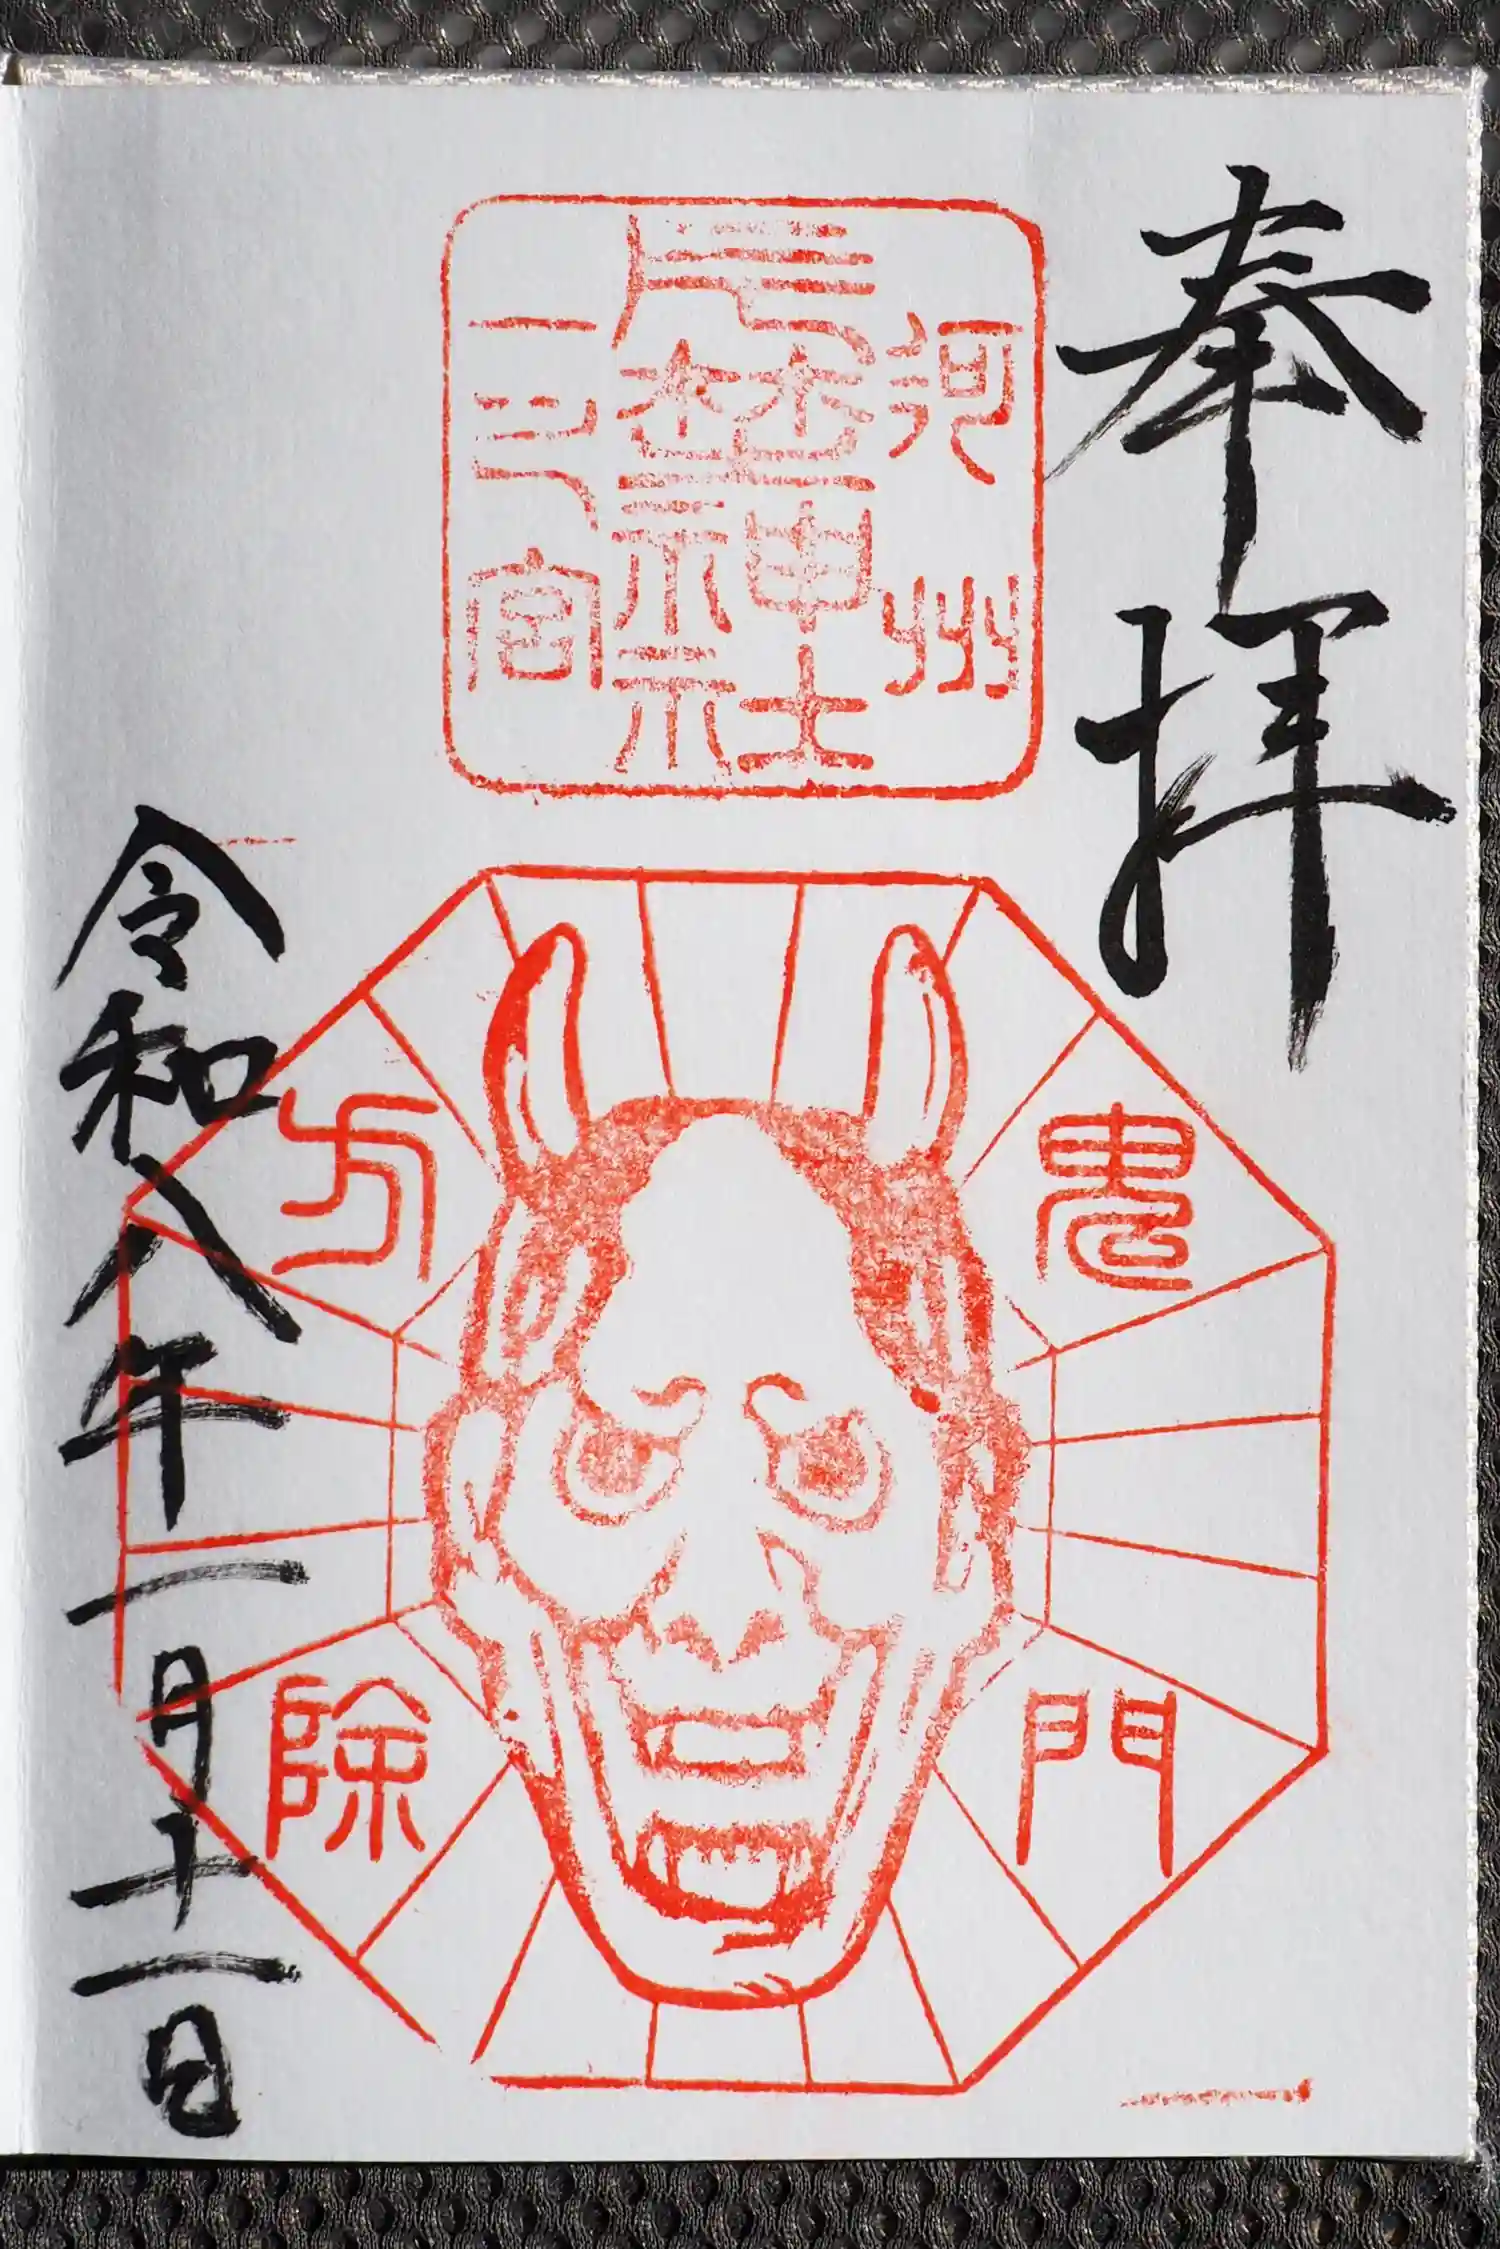 奉拝
河州
片埜神社
一宮
鬼門
方除
令和八年一月十一日